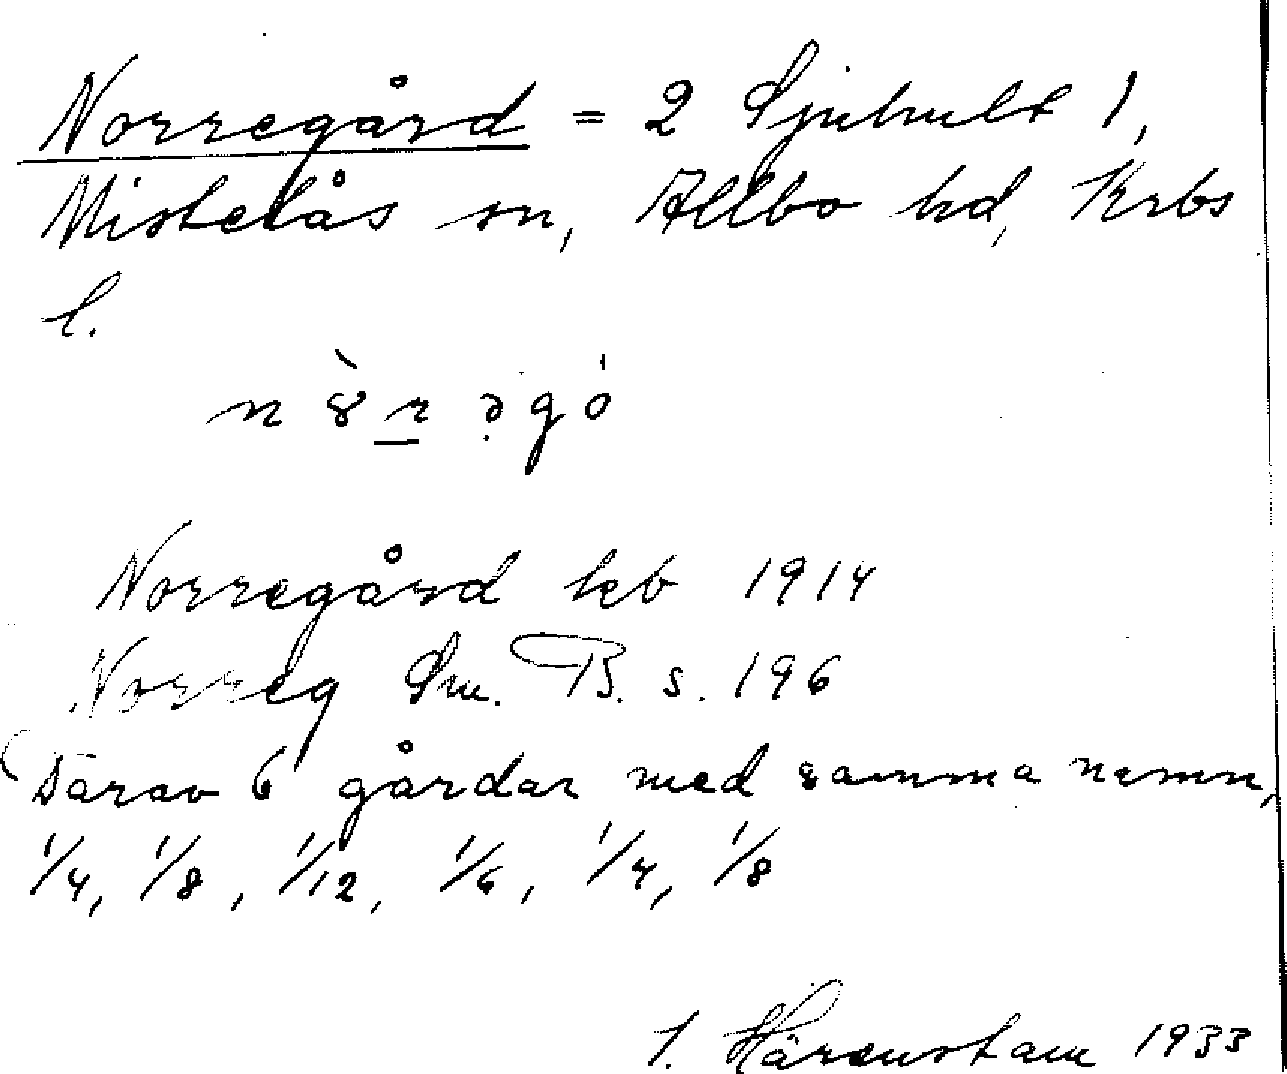 Norregård = 2 Sjuhult 1,
Mistelås sn, Allbo hd, Krbs
l.
n ȣ̀ r ə g ó
Norregård jeb 1914
Norreg Sm. B. s. 196
(Därav 6 gårdar med samma namn,
1/4, 1/8, 1/12, 1/6, 1/4, 1/8
I. Härenstam 1933